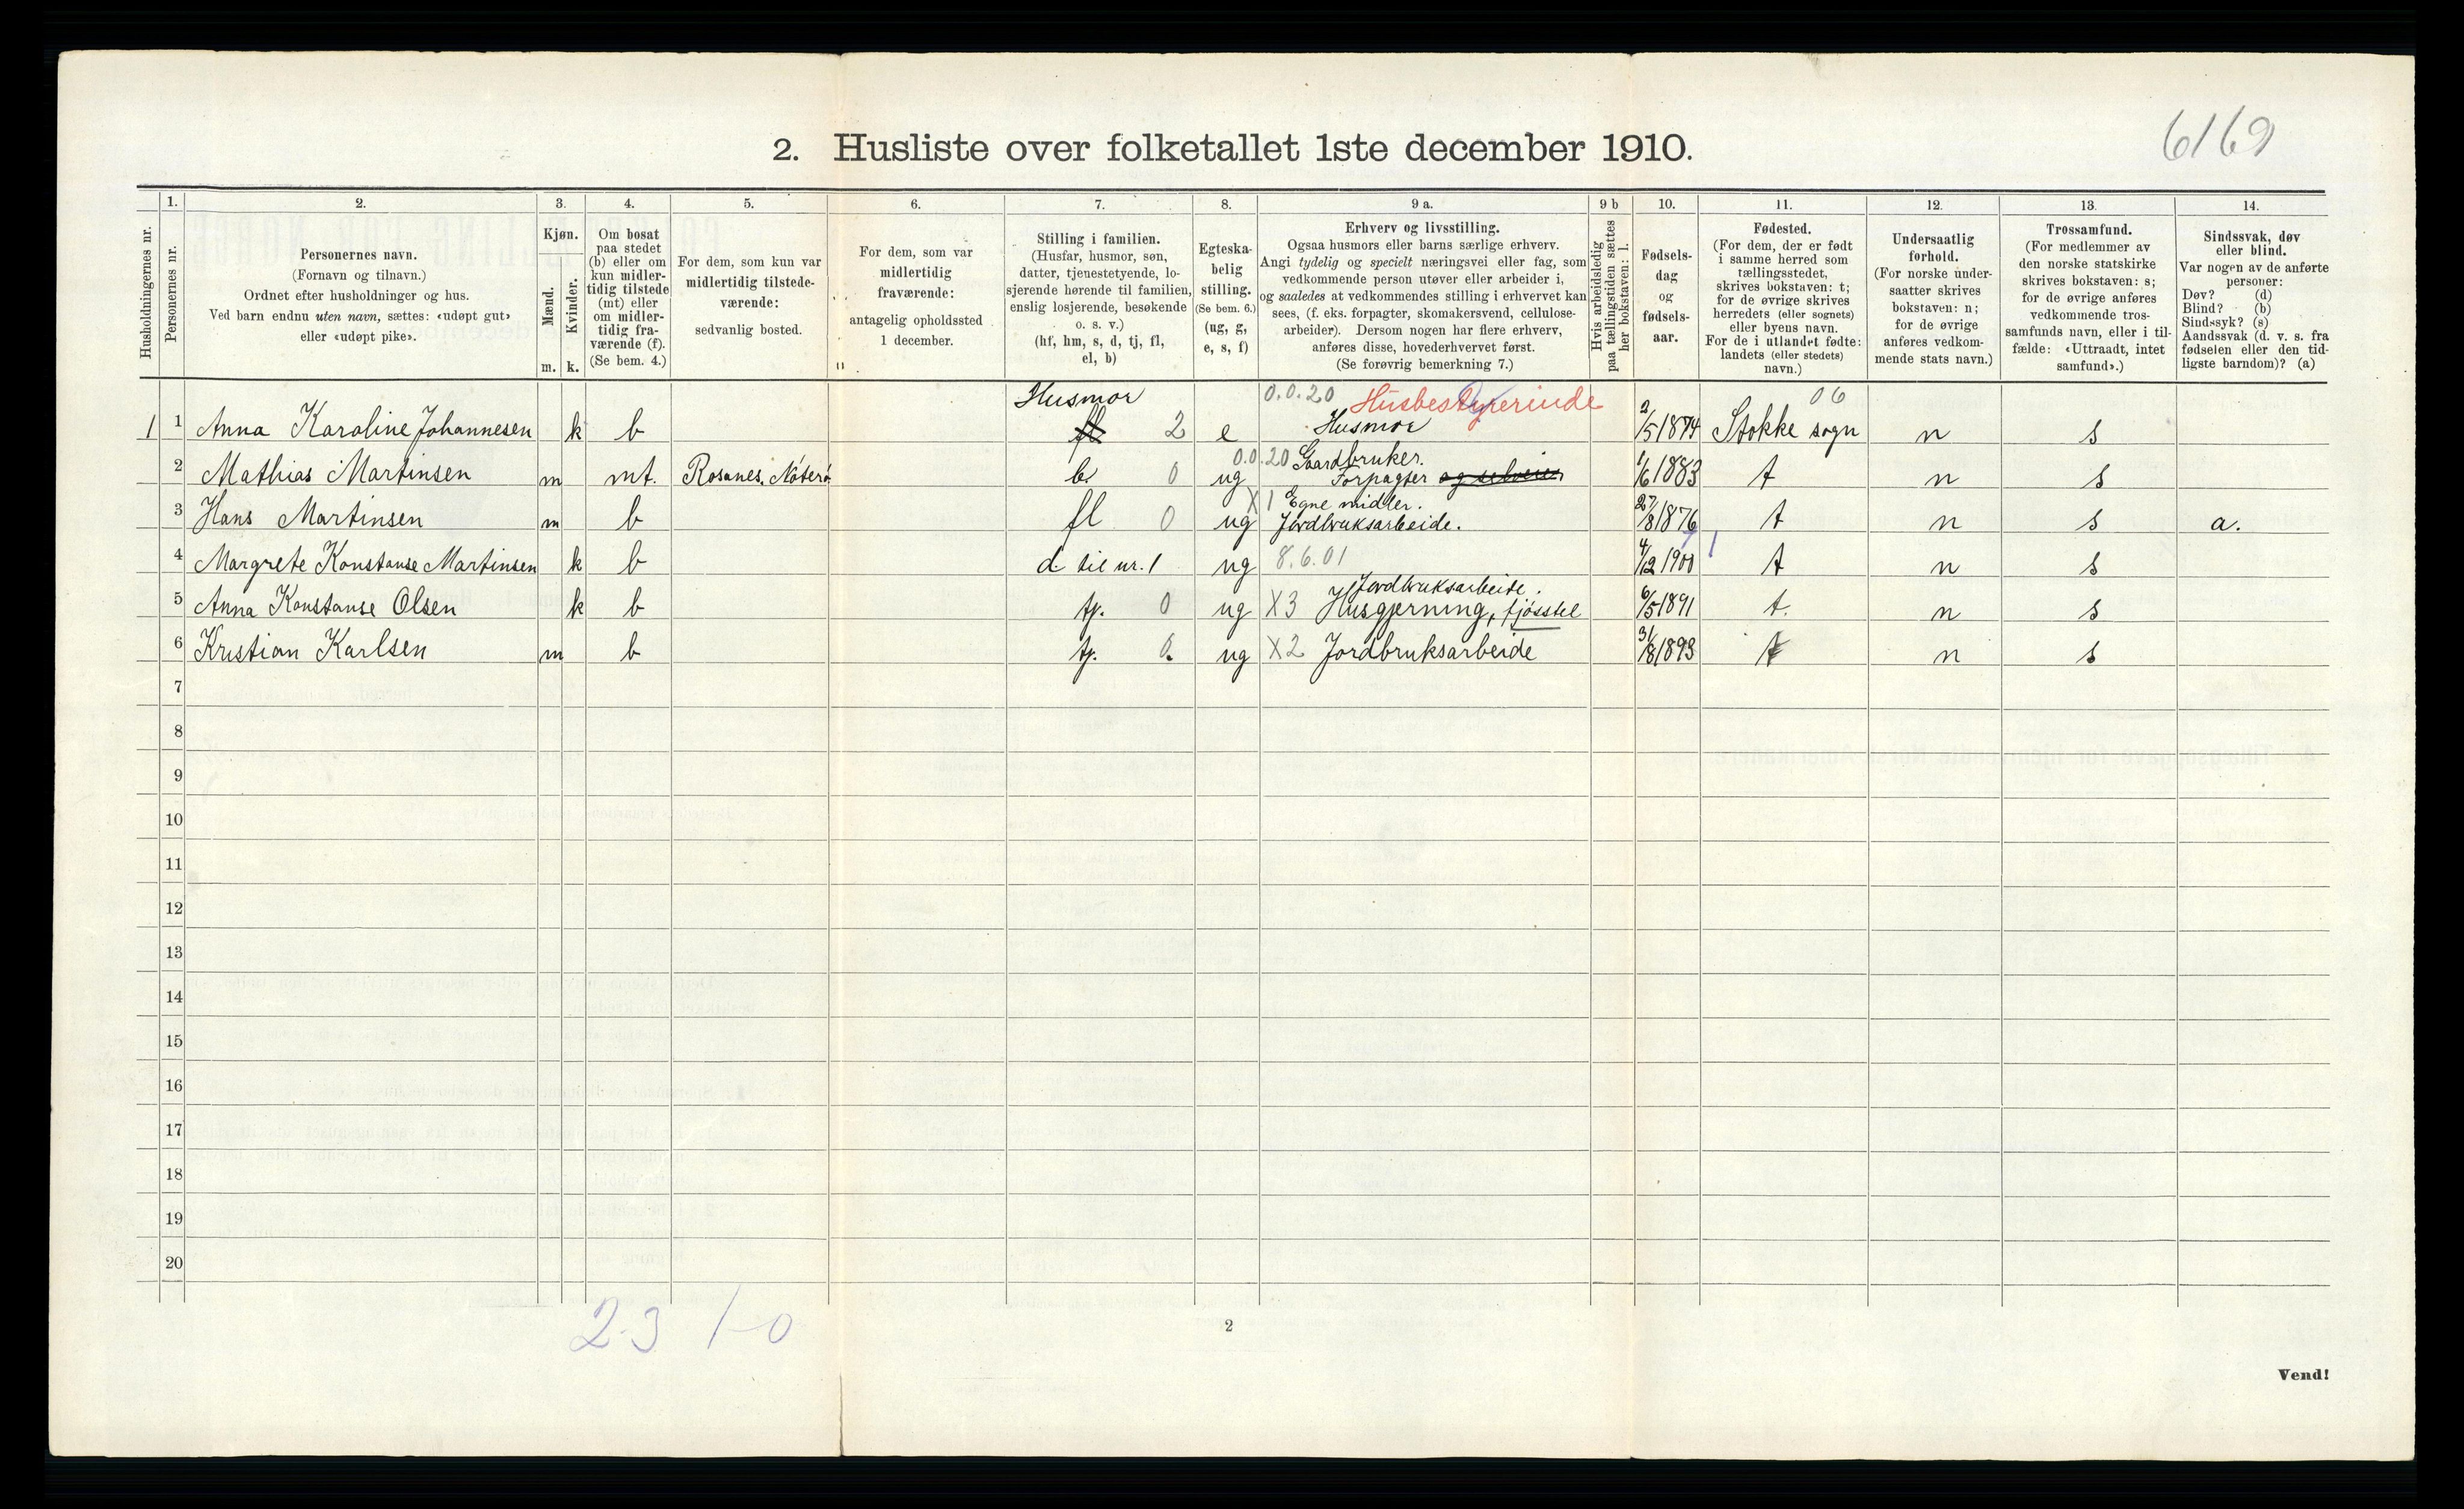 6169
2. Husliste over folketallet 1ste december 1910.
Husholdningernes nr.
1.
Personernes nr.
2.
Personernes navn.
(Fornavn og tilnavn.)
Ordnet efter husholdninger og hus.
Ved barn endnu uten navn, sættes: «udøpt gut»
eller «udøpt pike».
3.
Kjøn.
Mænd.
Kvinder.
m. k.
4.
Om bosat
paa stedet
(b) eller om
kun midler-
tidig tilstede
(mt) eller
om midler-
tidig fra-
værende (f).
(Se bem. 4.)
5.
For dem, som kun var
midlertidig tilstede-
værende:
sedvanlig bosted.
6.
For dem, som var
midlertidig
fraværende:
antagelig opholdssted
1 december.
7.
Stilling i familien.
(Husfar, husmor, søn,
datter, tjenestetyende, lo-
sjerende hørende til familien,
enslig losjerende, besøkende
o. s. v.)
(hf, hm, s, d, tj, fl,
el, b)
8.
Egteska-
belig
stilling.
(Se bem. 6.)
(ug, g,
e, s, f)
9 a.
Erhverv og livsstilling.
Ogsaa husmors eller barns særlige erhverv.
Angi tydelig og specielt næringsvei eller fag, som
vedkommende person utøver eller arbeider i,
og saaledes at vedkommendes stilling i erhvervet kan
sees, (f. eks. forpagter, skomakersvend, cellulose-
arbeider). Dersom nogen har flere erhverv,
anføres disse, hovederhvervet først.
(Se forøvrig bemerkning 7.)
9 b
Hvis arbeidsledig
paa tællingstiden sættes
her bokstaven: l.
10.
Fødsels-
dag
og
fødsels-
aar.
11.
Fødested.
(For dem, der er født
i samme herred som
tællingsstedet,
skrives bokstaven: t;
for de øvrige skrives
herredets (eller sognets)
eller byens navn.
For de i utlandet fødte:
landets (eller stedets)
navn.)
12.
Undersaatlig
forhold.
(For norske under-
saatter skrives
bokstaven: n;
for de øvrige
anføres vedkom-
mende stats navn.)
13.
Trossamfund.
(For medlemmer av
den norske statskirke
skrives bokstaven: s;
for de øvrige anføres
vedkommende tros-
samfunds navn, eller i til-
fælde: «Uttraadt, intet
samfund».)
14.
Sindssvak, døv
eller blind.
Var nogen av de anførte
personer:
Døv? (d)
Blind? (b)
Sindssyk? (s)
Aandssvak (d. v. s. fra
fødselen eller den tid-
ligste barndom)? (a)
Husmor 0.0.20 Husbestyrerinde 06
1 1 Anna Karoline Johannesen k b fl 2 e Husmor 2/5 1874 Stokke sogn n s
0.0.20 Gaardbruker.
2 Mathias Martinsen m mt. Rosanes. Nøterø b. 0 ug Forpagter og selveier 1/6 1883 t n s
X1 Egne midler.
3 Hans Martinsen m b fl 0 ug Jordbruksarbeide. 27/8 1876 t n s a.
4 Margrete Konstanse Martinsen k b d til nr. 1 ug 8.6.01 4/12 1900 t n s
Jordbruksarbeite.
5 Anna Konstanse Olsen k b tj. 0 ug X3 Husgjerning, fjøsstel 6/5 1891 t. n s
6 Kristian Karlsen m b tj. 0. ug X2 Jordbruksarbeide 31/8 1893 t n s
7
8
9
10
11
12
13
14
15
16
17
18
19
20
2-3 1-0
2
Vend!